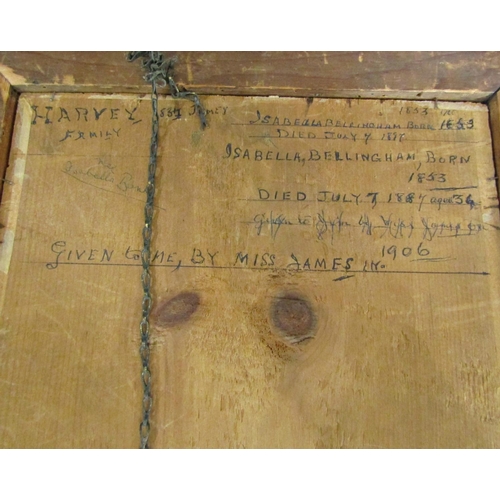 HARVEY,
FAMILY
1853
ISABELLA BELLINGHAM BORN 1853
DIED JULY 7, 18
ISABELLA, BELLINGHAM, BORN
1853
DIED JULY 7, 1887 aged 34
Given to
GIVEN to ME, BY MISS JAMES IN.
1906